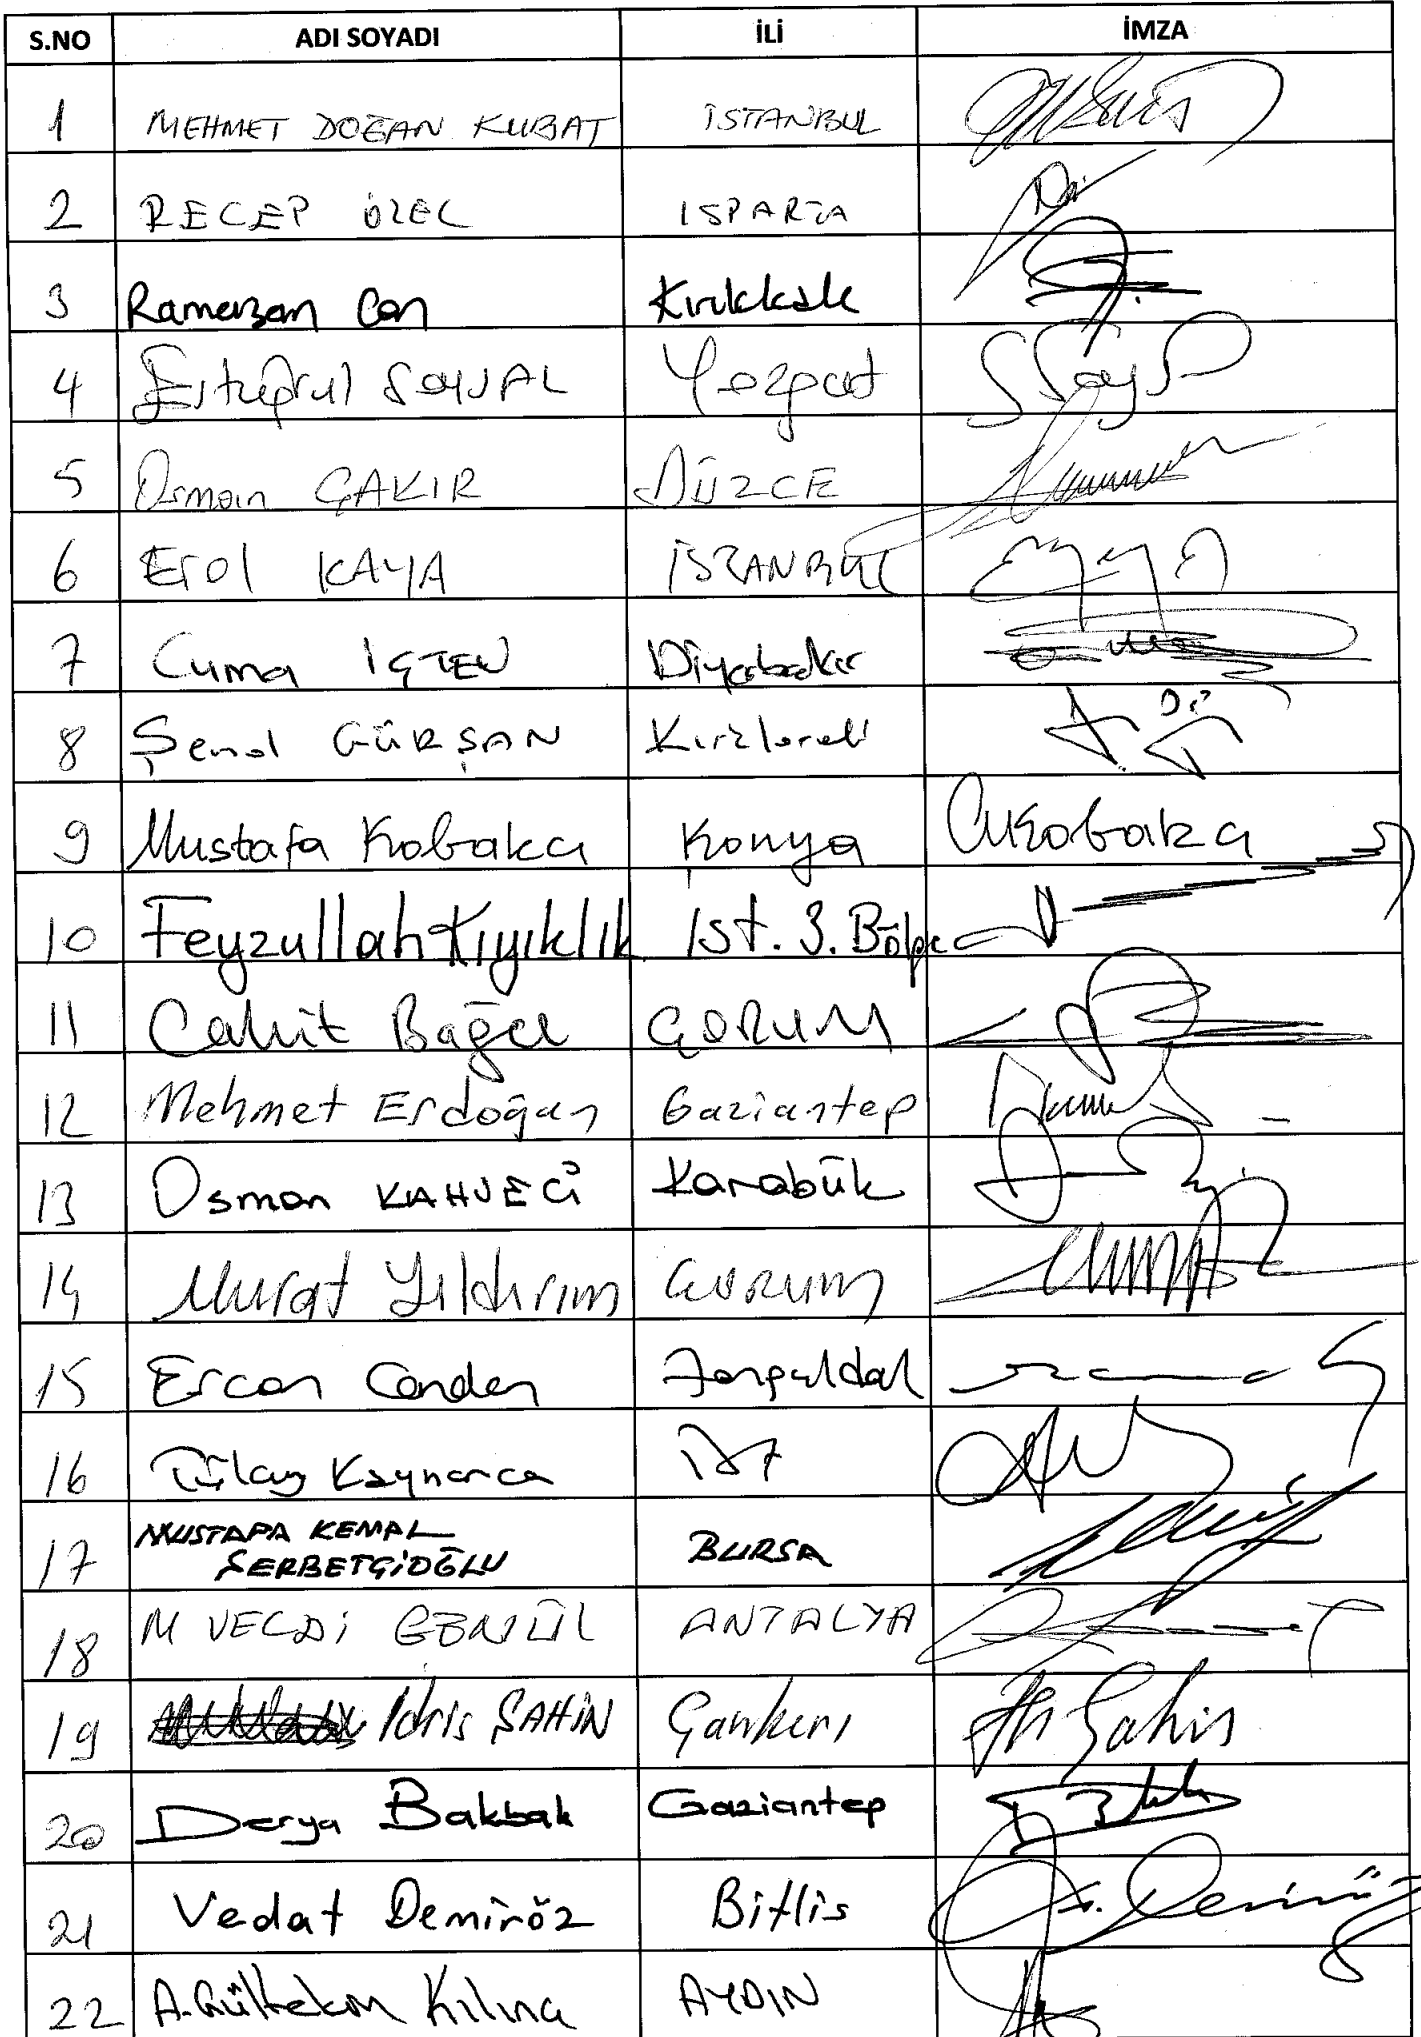 S.NO ADI SOYADI İLİ İMZA
1 MEHMET DOĞAN KUBAT İSTANBUL
2 RECEP ÖZEL ISPARTA
3 Ramazan Can Kırıkkale
4 Ertuğrul SOYSAL Yozgat
5 Osman ÇAKIR DÜZCE
6 Erol KAYA İSTANBUL
7 Cuma İÇTEN Diyarbakır
8 Şenol GÜRŞAN Kırklareli
9 Mustafa Kabakcı Konya
10 Feyzullah Kıyıklık İst. 3. Bölge
11 Cahit Bağcı ÇORUM
12 Mehmet Erdoğan Gaziantep
13 Osman KAHVECİ Karabük
14 Murat Yıldırım ÇORUM
15 Ercan Candan Zonguldak
16 Tülay Kaynarca İST
17 MUSTAFA KEMAL
ŞERBETÇİOĞLU BURSA
18 M VECDİ GÖNÜL ANTALYA
19 İdris ŞAHİN Çankırı
20 Derya Bakbak Gaziantep
21 Vedat Demiröz Bitlis
22 A.Gültekin Kılınç AYDIN